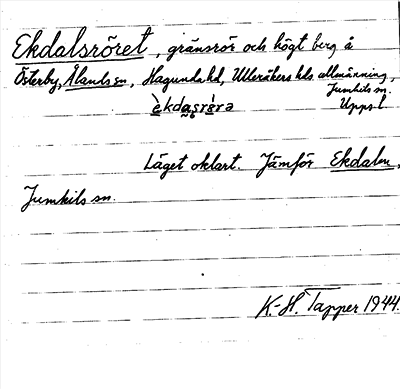 Ekdalsröret, gränsrör och högt berg å
Österby, Ålands sn, Hagunda hd, Ulleråkers hds allmänning,
Jumkils sn.
Upps. l
Läget oklart. Jämför Ekdalen,
Jumkils sn.
K.-H. Tapper 1944.